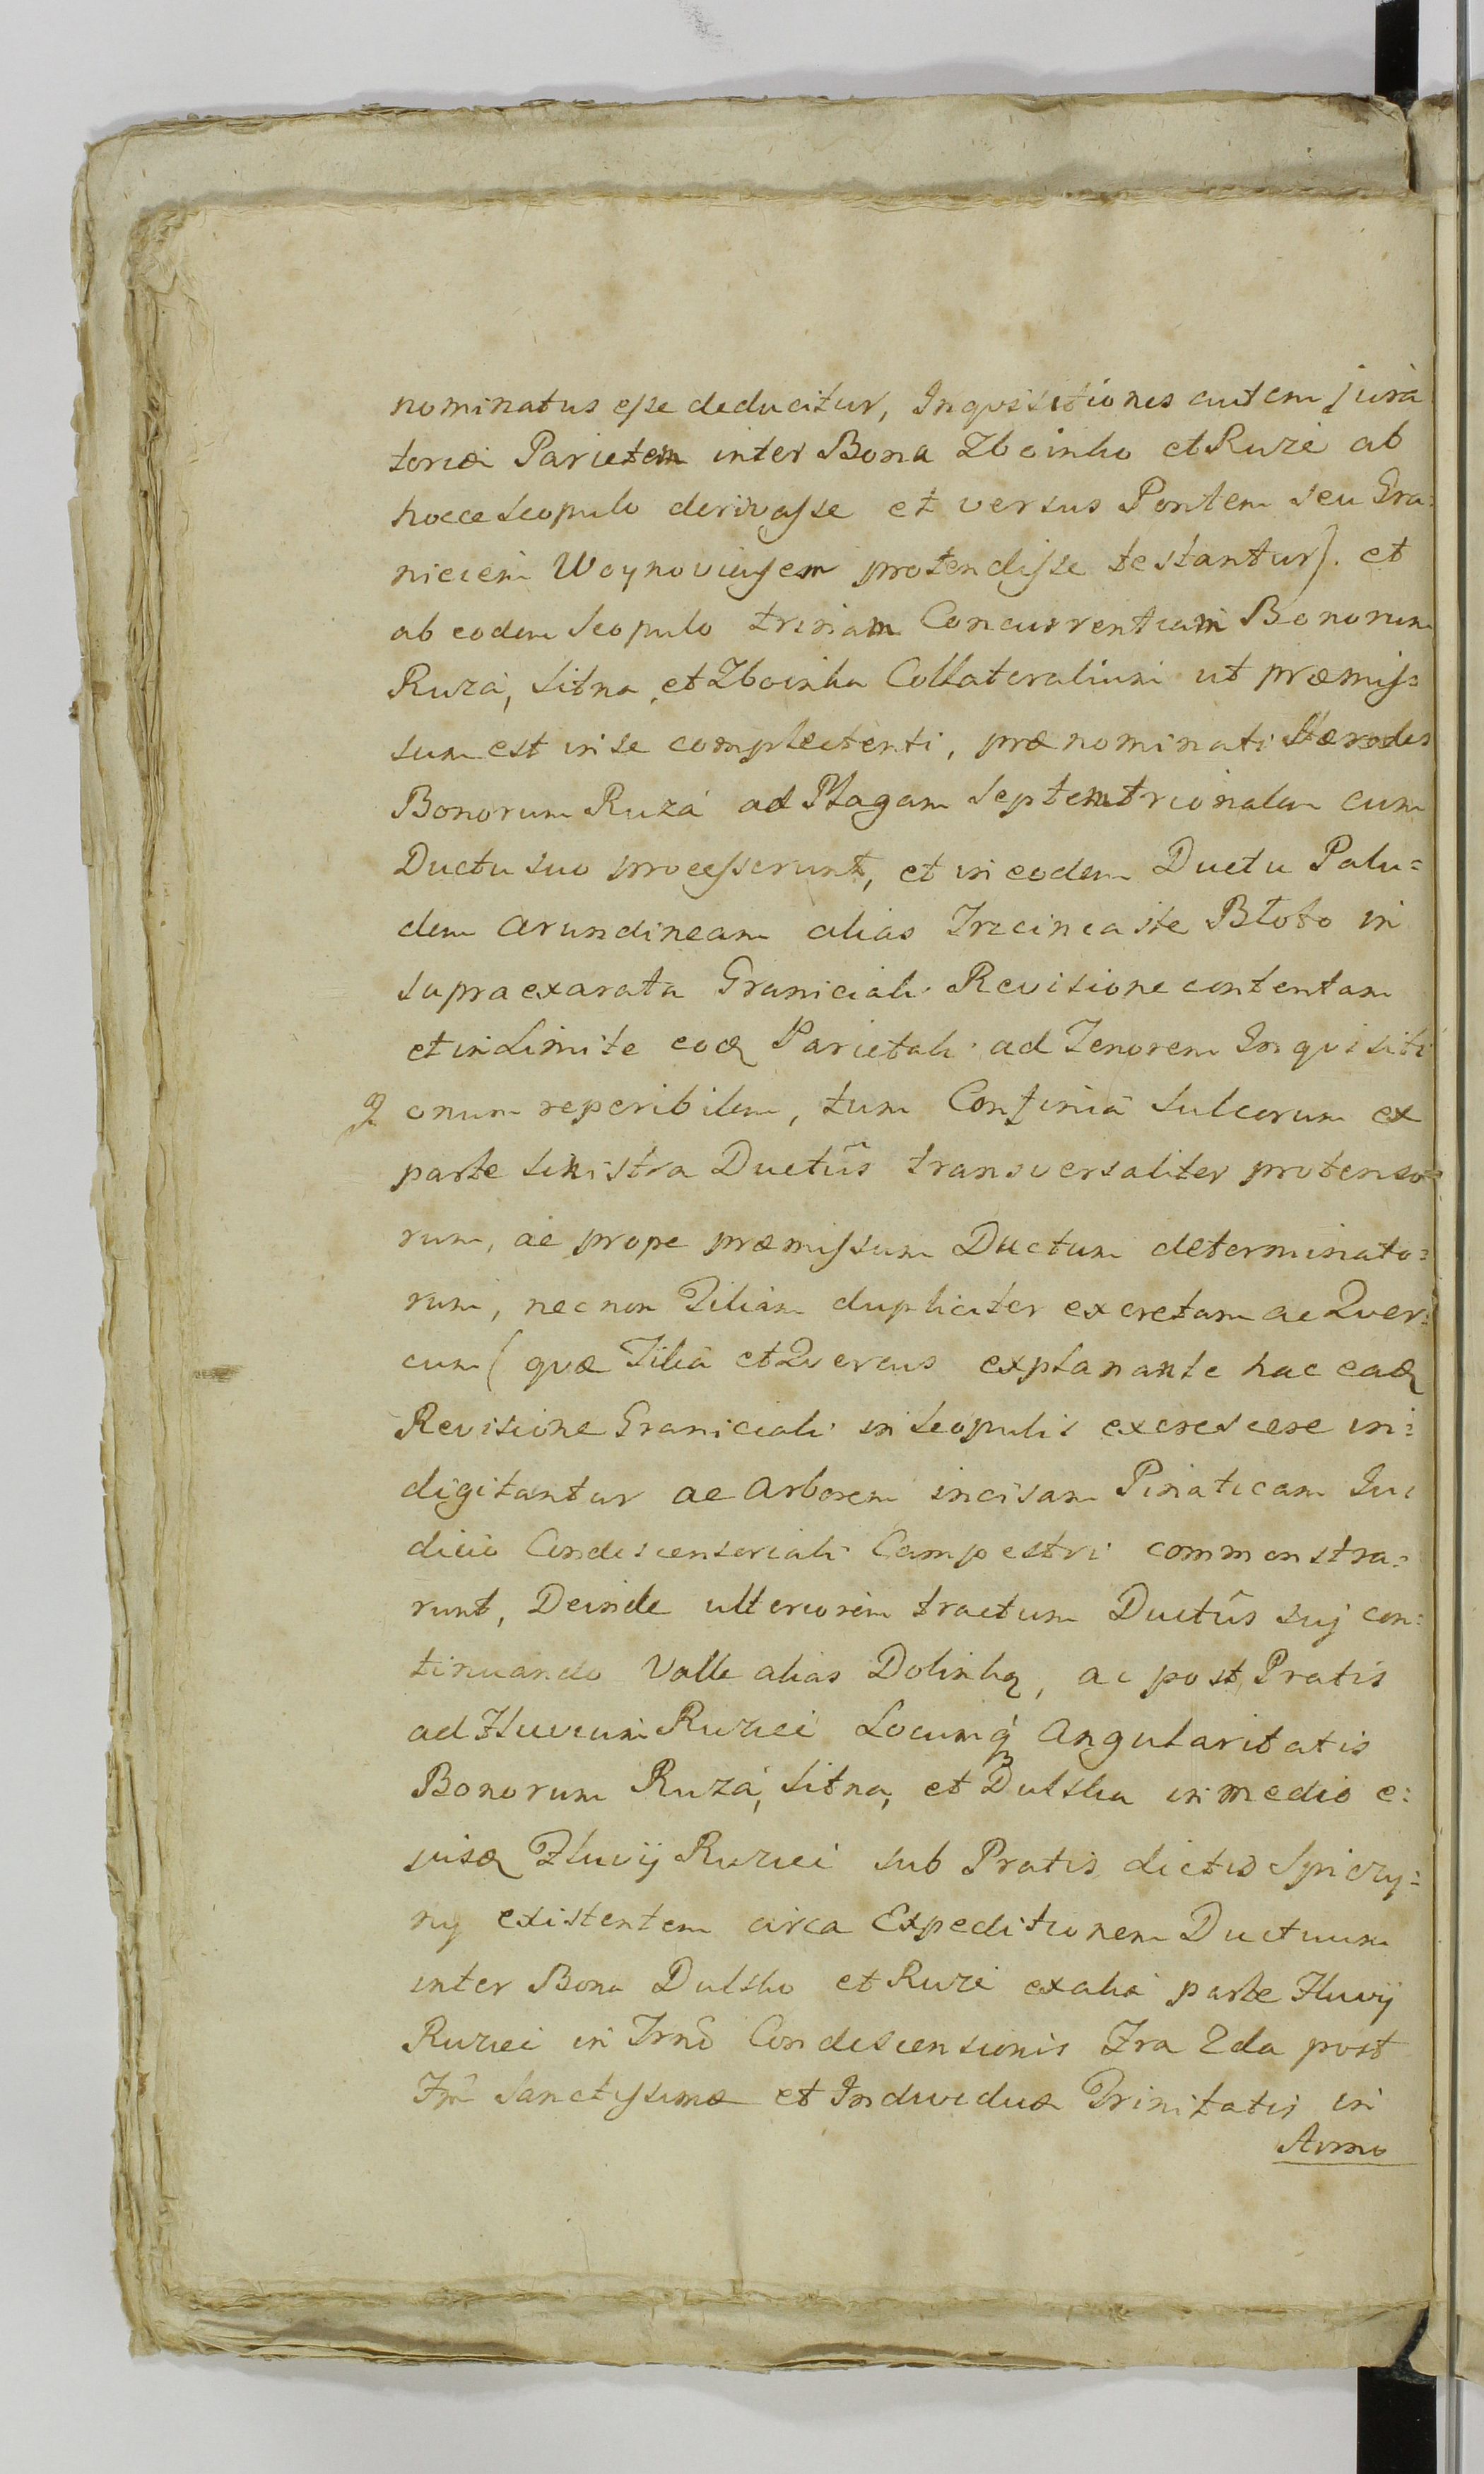 nominatus esse deducitur, Inqvisitiones autem jura
toriæ Parietem inter Bona Zboinko et Ruże ab
hocce Scopulo derivasse et versus Pontem seu Gra:
niciem Woynoviensem protendisse testantur). et
ab eodem Scopulo trinam Concurrentiam Bonorum
Ruża, Sitna, et Zboinka Collateralium ut præmis:
sum est in se complectenti, prænominati Hæredes
Bonorum Ruża ad Plagam Septemtrionalem cum
Ductu suo processerunt, et in eodem Ductu Palu:
dem arundineam alias Trzcincaste Błoto in
supraexarata Graniciali Revisione contentam
et in Limite eodq Parietali ad Tenorem Inqvisiti
onum reperibilem, tum Confinia Sulcorum ex
parte sinistra Ductûs transversaliter protenso:
rum, ac prope præmissum Ductum determinato:
rum, nec non Tiliam dupliciter excretam ac Qver:
cum (qvæ Tilia et Qvercus explanante hac eadq
Revisione Graniciali in Scopulis excrescere in:
digitantur ac Arborem incisam Pinaticam Iu:
dicio Condescensoriali Campestri commonstra:
runt, Deinde ulteriorem tractum Ductûs suj con:
tinuando Valle alias Dolinką, ac post Pratis
ad Fluvium Ruziec Locumq Angularitatis
Bonorum Ruża, Sitna, et Dulska in medio e:
jusdq Fluvij Ruziec sub Pratis dictis Spiczy:
ny existentem circa Expeditionem Ductuum
inter Bona Dulsko et Ruże ex alia parte Fluvij
Ruziec in Trnō Condescensionis Fra 2da post
Fm̃ Sanctissimæ et Individuæ Trinitatis in
Anno